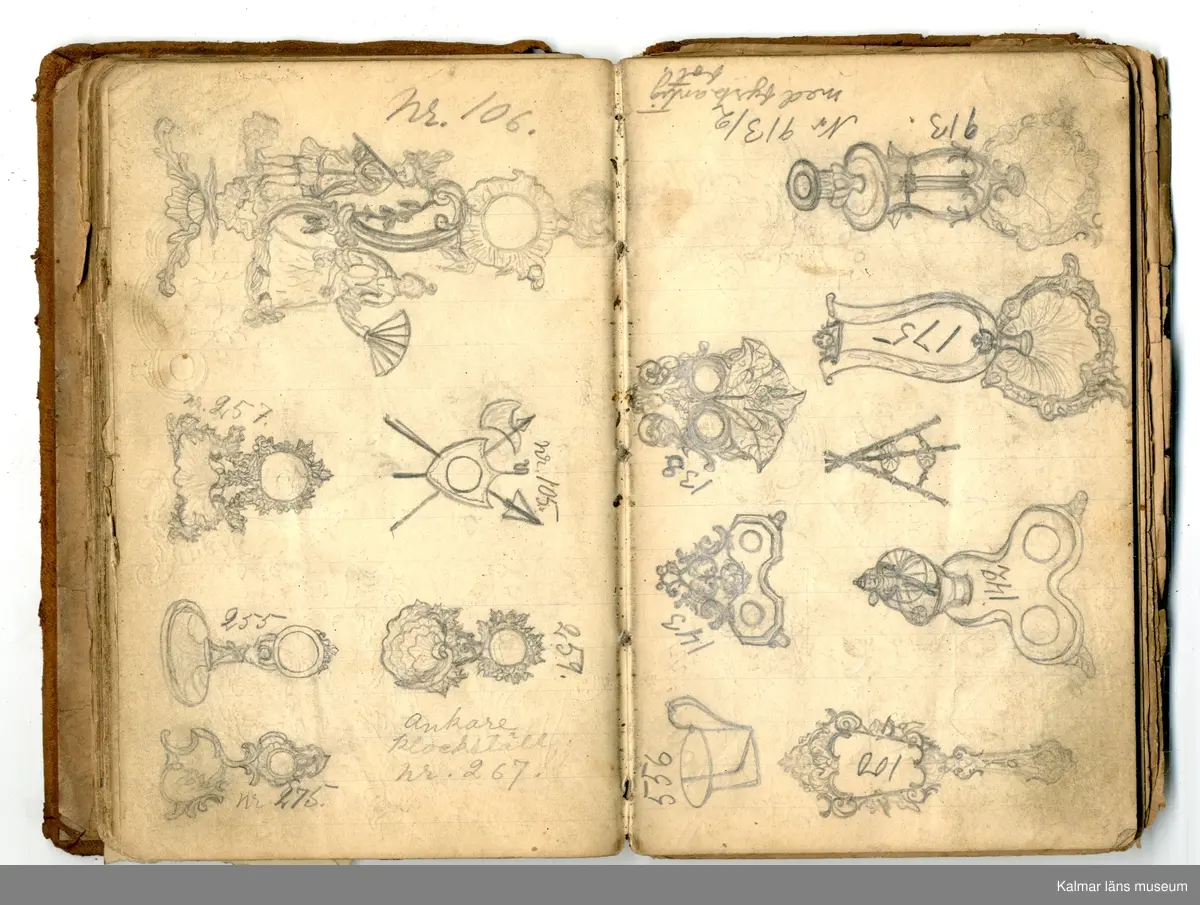 Nr. 901/6.
n. 257
nr. 105.
a
255
259.
ankare
klockställ
nr. 267.
nr 275.
Nr 913/2
med fyrkantig
913.
175
13
a
142
143
556
100
Kalmar läns museum